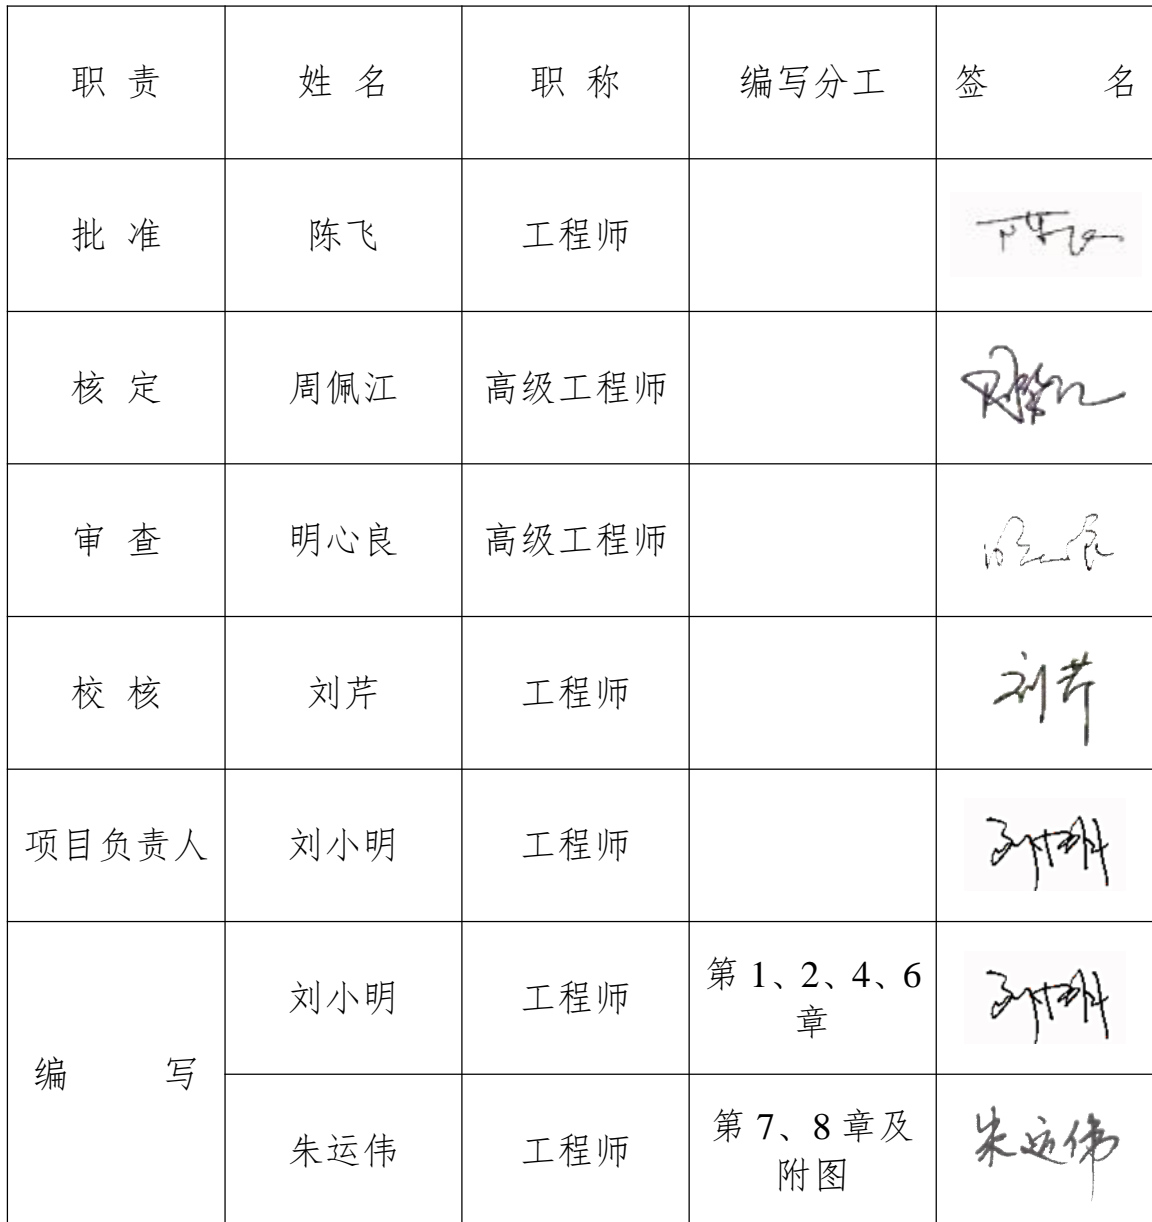 职 责 姓 名 职 称 编写分工 签 名
批 准 陈飞 工程师
核 定 周佩江 高级工程师
审 查 明心良 高级工程师
校 核 刘芹 工程师 刘芹
项目负责人 刘小明 工程师
编 写 刘小明 工程师 第 1、2、4、6
章
朱运伟 工程师 第 7、8 章及 朱运伟
附图